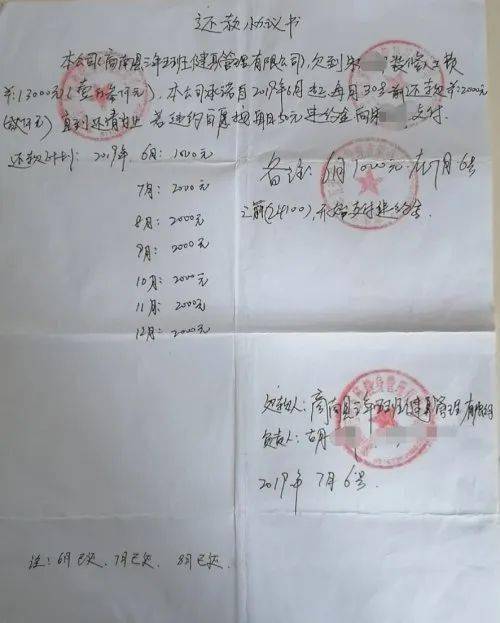 还款协议书
本公司(商南县三年二班健身管理有限公司),欠到 装修人工款
￥:13000元(壹万叁仟元).本公司承诺自2019年6月起,每月30号前还款￥:2000元
(贰仟元)直到还清为止 若违约自愿按每日50元违约金向 支付.
还款计划: 2019年. 6月: 1000元
7月: 2000元
8月: 2000元
9月: 2000元
10月: 2000元
11月: 2000元
12月: 2000元
备注: 6月1000元 在7月6号
之前(24:00),开始支付违约金.
欠款人: 商南县三年二班健身管理有限公司
负责人: 胡
2019年 7月6号.
注: 6月已还. 7月已还. 8月已还.